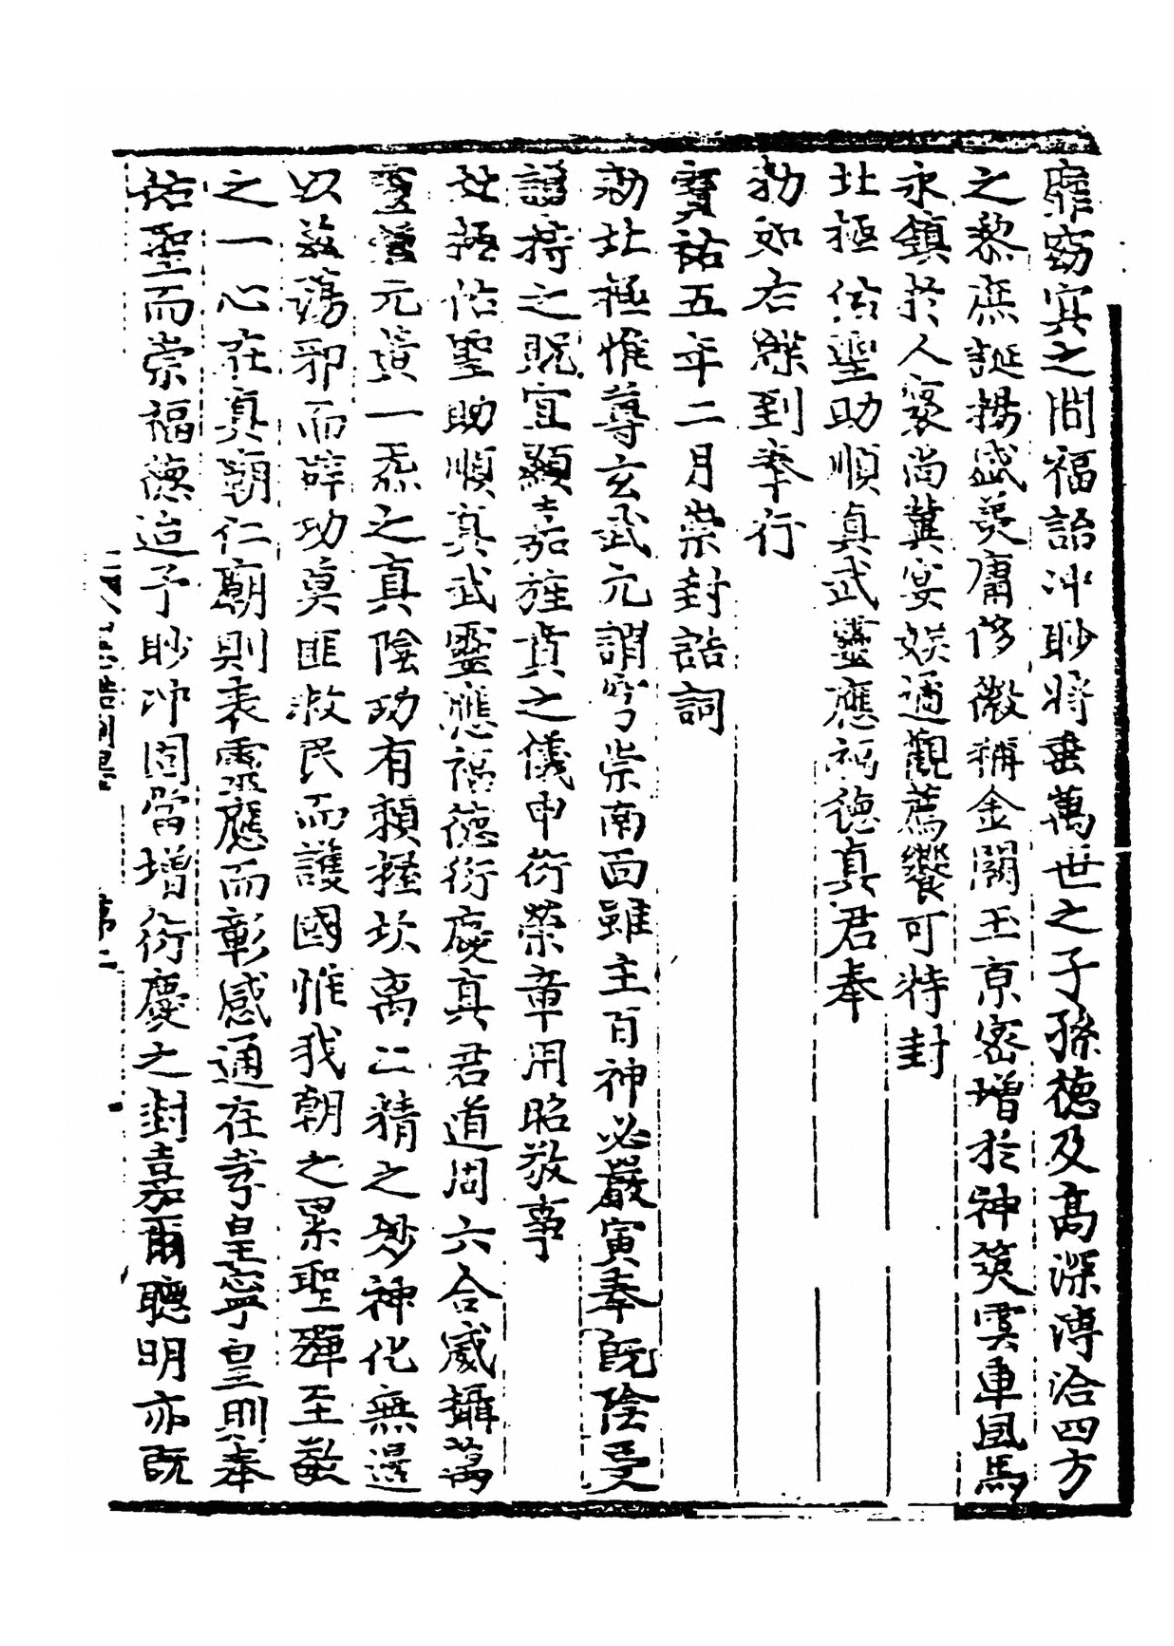 靡窈冥之間福詒沖眇將垂萬世之子孫德及髙深溥洽四方
之黎庶誕揚盛羙庸侈徽稱金闕玉京密增於神筭雲車風馬
永鎮扵人寰尚冀宴娱通觀薦饗可特封
北極佑聖助順真武靈應福德真君奉
勑如右牒到奉行
寳祐五年二月崇封誥詞
勑北極惟尊玄武元謂穹崇南面雖主百神必嚴寅奉既陰受
護持之貺宜顯嘉旌賁之儀申衍榮章用昭敬事
北極佑聖助順真武靈應福德衍慶真君道周六合威攝萬
靈 元黄一炁之真陰功有賴坎离二精之妙神化無邊
以兹蕩邪而辟功莫匪救民而護國惟我朝之累聖殫至敬
之一心在真廟仁廟則表靈應而彰感通在孝皇寧皇則奉
祐聖而崇福德迨予眇沖固當增衍慶之封嘉爾聰明亦既
誥詞 第二